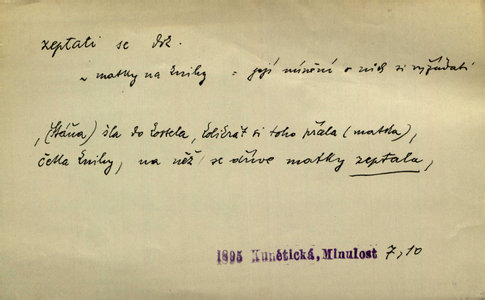 zeptati se dok.
~ matky na knihy = její mínění o nich si vyžádati
, (Káňa) šla do kostela, kolikrát si toho přála (matka),
četla knihy, na něž se dříve matky zeptala,
1895 Kunětická, Minulost 7,10